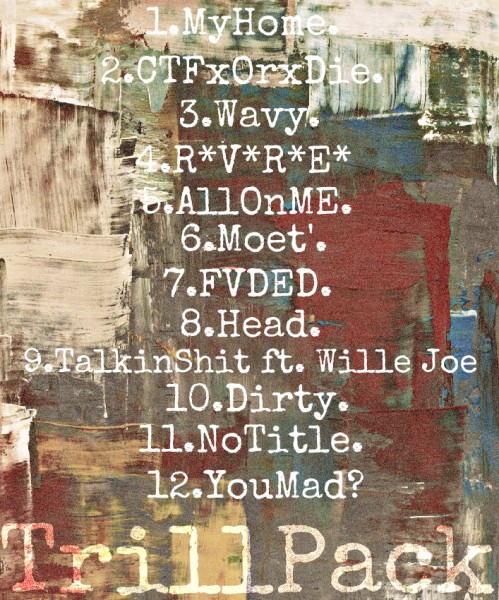 1.MyHome.
2.CTFxOrxDie.
3.Wavy.
4.R*V*R*E*
5.AllOnME.
6.Moet'.
7.FVDED.
8.Head.
9.TalkinShit ft. Wille Joe
10.Dirty.
11.NoTitle.
12.YouMad?
TrillPack